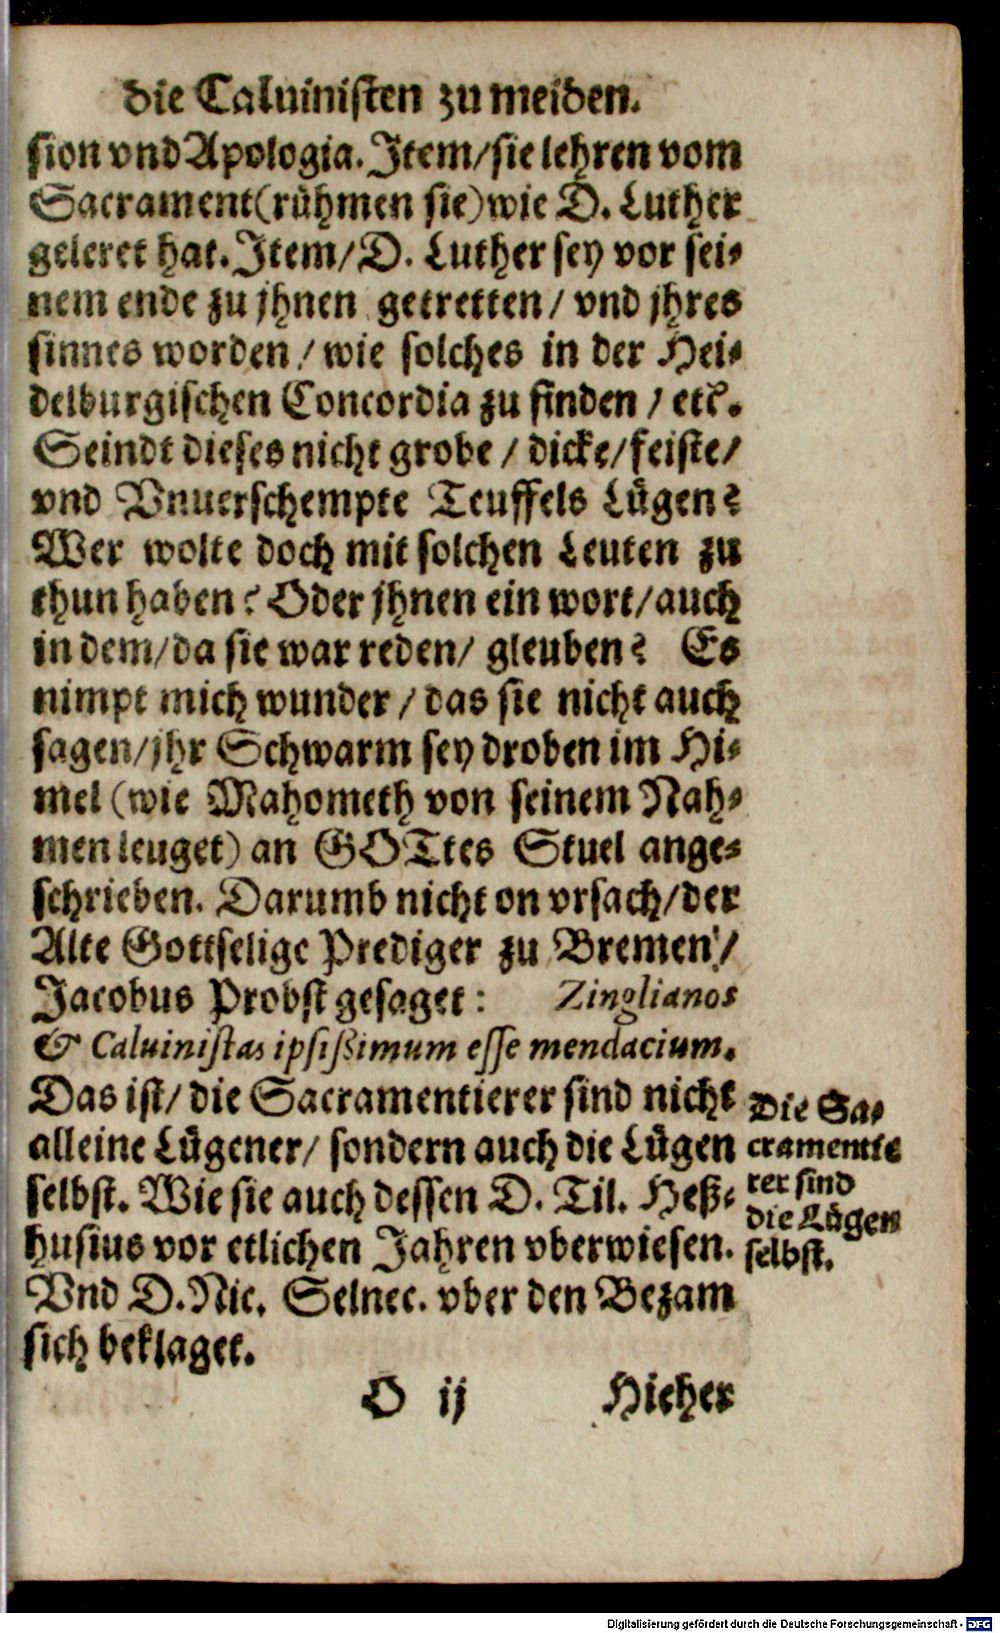 die Caluinisten zu meiden.
sion vnd Apologia. Item/sie lehren vom
Sacrament(rühmen sie)wie D. Luther
geleret hat. Item/D. Luther sey vor sei-
nem ende zu jhnen getretten/ vnd jhres
sinnes worden/ wie solches in der Hei-
delburgischen Concordia zu finden/ etc.
Seindt dieses nicht grobe/ dicke/feiste/
vnd Vnuerschempte Teuffels Lügen?
Wer wolte doch mit solchen Leuten zu
thun haben? Oder jhnen ein wort/auch
in dem/da sie war reden/ gleuben? Es
nimpt mich wunder/ das sie nicht auch
sagen/jhr Schwarm sey droben im Hi-
mel (wie Mahometh von seinem Nah-
men leuget) an GOTtes Stuel ange-
schrieben. Darumb nicht on vrsach/der
Alte Gottselige Prediger zu Bremen/
Jacobus Probst gesaget: Zinglianos
& Caluinistas ipsißimum esse mendacium.
Das ist/ die Sacramentierer sind nicht
alleine Lügener/ sondern auch die Lügen
selbst. Wie sie auch dessen D. Til. Heß-
husius vor etlichen Jahren vberwiesen.
Vnd D. Nic. Selnec. vber den Bezam
sich beklaget.
Die Sa-
cramentie
rer sind
die Lügen
selbst.
O ij Hieher
Digitalisierung gefördert durch die Deutsche Forschungsgemeinschaft - DFG